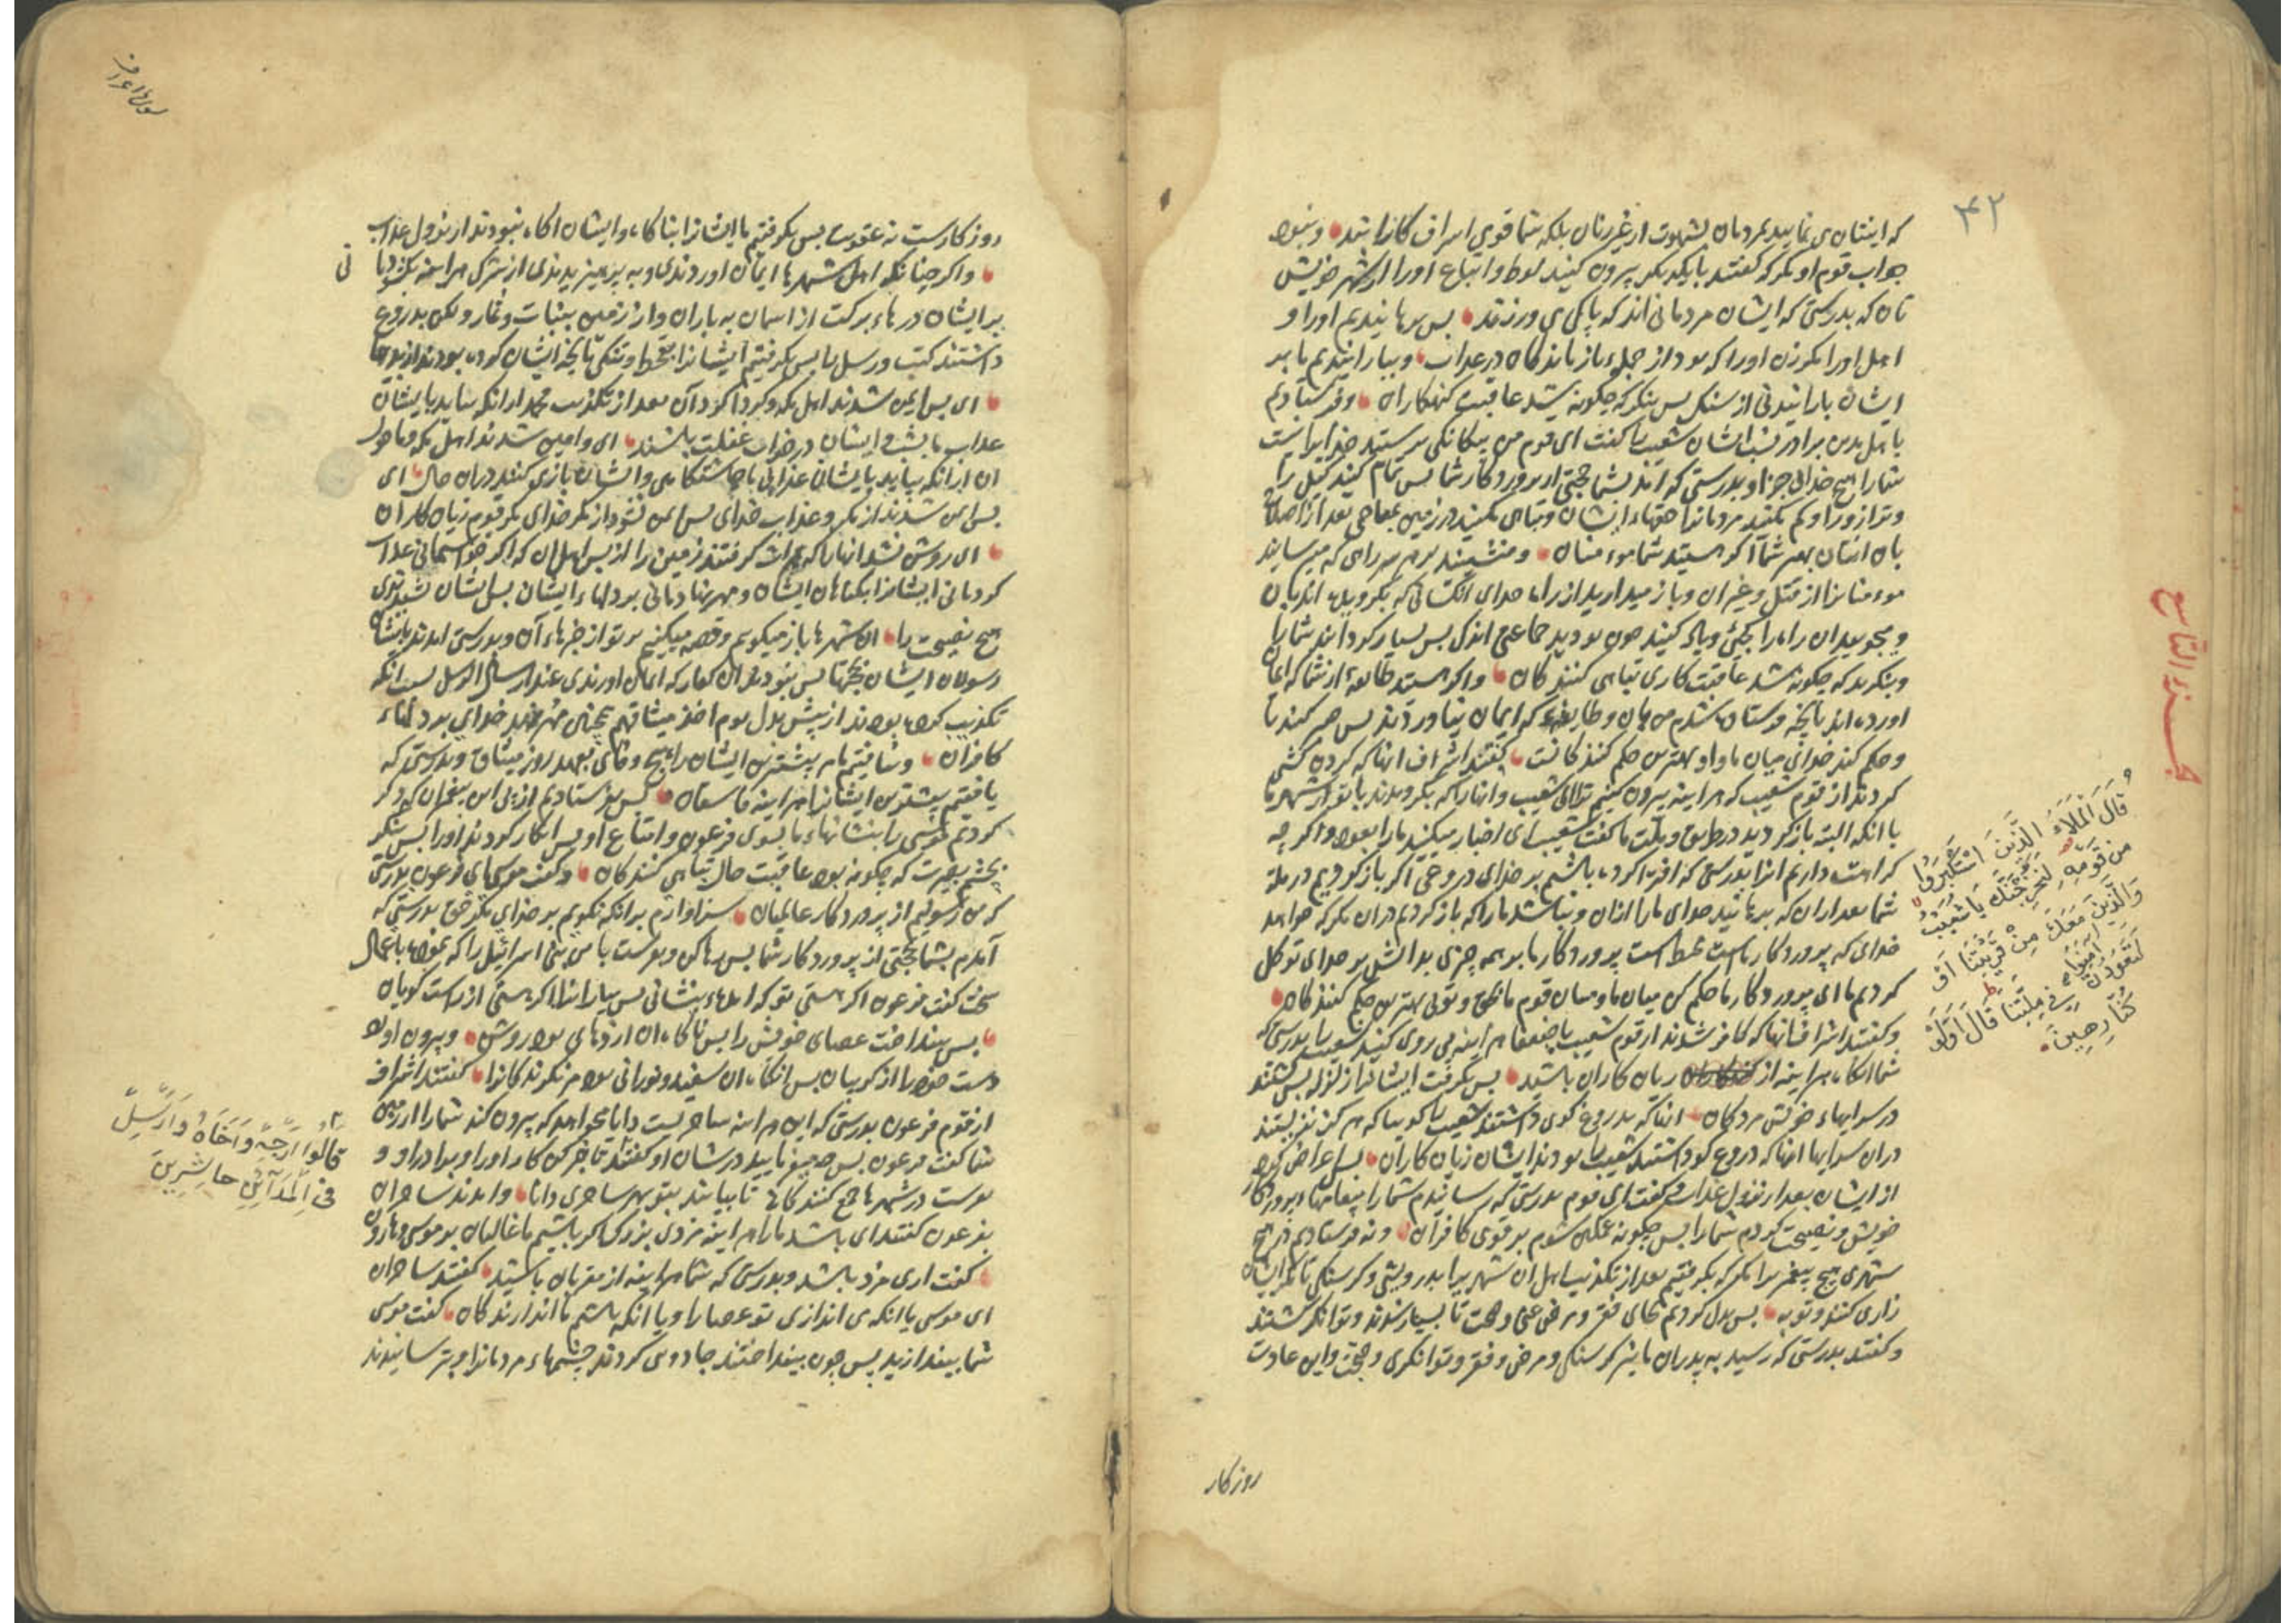 ۴۲
که ایشان می نمایید بمردمان بشهوت از غیر زنان بلکه شما قومی اسراف کارانید و نبود
جواب قوم او مکر که کفتند بایکدیکر بیرون کنید لوط و اتباع او را از شهر خویش
تان که بدرستی که ایشان مردمانی اند که پاکی می ورزند بس برهانیدیم او را و
اهل او را مکر زن او را که بود از جمله باز ماندکان در عذاب و ببارانیدیم ما بر
ایشان بارانیدنی از سنک بس بنکر که چکونه شد عاقبت کنهکاران و فرستادیم
باهل مدین برادر نسب ایشان شعیب را کفت ای قوم من بیکانکی پرستید خدایرا نیست
شما را هیچ خدای جز او بدرستی که امد بشما حجتی از پروردکار شما بس تمام کنید کیل را
و ترازو را و کم مکنید مردمانرا حقهاء ایشان و تباهی مکنید در زمین بمعاصی بعد از اصلاح
بان ایشان بهتر شما را اکر هستید شما مومنان و منشینید بر هر راهی که میترسانید
مومنانرا از قتل و غیر ان و باز میدارید از راه خدای انکسانی که بکرویده اند بان
و میجویید ان راه را کجی و یاد کنید چون بودید جماعتی اندک بس بسیار کردانید شما را
و بنکرید که چکونه شد عاقبت کاری تباهی کنندکان و اکر هستید طایفه از شما که ایمان
اورده اند بانچه فرستاده شدم من بان و طایفه که ایمان نیاوردند بس صبر کنید تا
و حکم کند خدای میان ما و او بهترین حکم کنندکانست کفتند اشراف انها که کردن کشی
کردند از قوم شعیب که هراینه بیرون کنیم ترا ای شعیب و انها را که بکرویدند با تو از شهر ما
با انکه البته باز کردید در طریق و ملت ما کفت شعیب ای اجبار میکنید ما را بعود و اکر چه
کراهت داریم انرا بدرستی که افترا کرده باشیم بر خدای دروغی اکر باز کردیم در ملة
شما بعد از ان که برهانید خدای ما را ازان و نباشد ما را که باز کردیم دران مکر که خواهد
خدای که پروردکار ماست محیط است پروردکار ما بر همه چیزی بدانش بر خدای توکل
کردیم ما ای پروردکار ما حکم کن میان ما و میان قوم ما بحق و توی بهترین حکم کنندکان
و کفتند اشراف انها که کافر شدند از قوم شعیب با ضعفا هراینه پی روی کنید شعیب را بدرستی که
شما انکاه هراینه از زیان کاران باشید بس بکرفت ایشانرا زلزله بس کشتند
در سرایهاء خویش مردکان انها که بدروغ کوی داشتند شعیب را کوییا که هرکز نزیستند
دران سرایها انها که دروغ کو داشتند شعیب را بودند ایشان زیان کاران بس اعراض کرد
از ایشان بعد از نزول عذاب و کفت ای قوم بدرستی که رسانیدم شما را پیغامهاء پروردکار
خویش و نصیحت کردم شما را بس چکونه غمکین شوم بر قومی کافران و نه فرستادیم در هیچ
شهری هیچ پیغمبر را مکر که بکرفتیم بعد از تکذیب اهل ان شهر را بدرویشی و کرسنکی تا مکر ایشان
زاری کنند و توبه بس بدل کردیم بجای فقر و مرض غنی و صحت تا بسیار شدند و توانکر کشتند
و کفتند بدرستی که رسید به پدران ما نیز کرسنکی و مرض و فقر و توانکری و صحت و این عادت
روزکار
الجزء التاسع
قَالَ الْمَلَاءُ الَّذِینَ اسْتَکْبَرُوا
مِن قَوْمِهِ لَنُخْرِجَنَّكَ یَا شُعَیْبُ
وَالَّذِینَ مَعَكَ مِنْ قَرْیَتِنَا اَوْ
لَتَعُودُنَّ فِی مِلَّتِنَا قَالَ اَوَلَوْ
کُنَّا کٰرِهِینَ
سورة الاعراف
روزکارست نه عقوبت بس بکرفتیم ما ایشانرا بناکاه و ایشان اکاه نبودند از نزول عذاب
و اکر چنانکه اهل شهرها ایمان اوردندی و به پرهیزیدندی از شرک هراینه بکشودیم ما
بر ایشان درهاء برکت از اسمان به باران و از زمین بنبات و ثمار و لکن بدروغ
داشتند کتب و رسل را بس بکرفتیم ایشانرا بقحط و تنکی بانچه ایشان کرده بودند از بدیها
ای بس ایمن شدند اهل مکه و کرداکرد آن بعد از تکذیب محمد از انکه بیاید بایشان
عذاب ما بشب و ایشان در خواب غفلت باشند ای و ایمن شدند اهل مکه و ماحول
ان از انکه بیاید بایشان عذابی ما چاشتکاهی و ایشان بازی کنند دران حال ای
بس ایمن شدند از مکر و عذاب خدای بس ایمن نشود از مکر خدای مکر قوم زیان کاران
ای روشن نشد انها را که میراث کرفتند زمین را از بس اهل ان که اکر خواستمانی عذاب
کردمانی ایشانرا بکناهان ایشان و مهر نهادمانی بر دلهاء ایشان بس ایشان نشنیدندی
هیچ نصیحت را ان شهرها باز میکویم و قصه میکنیم بر تو از خبرهاء آن و بدرستی امدند بایشان
رسولان ایشان بحجتها بس نبودند ان کفار که ایمان اورندی عند ارسال الرسل بسبب انکه
تکذیب کرده بودند از پیش بدل یوم اخذ میثاقهم همچنین مهر نهد خدای بر دلهاء
کافران و نیافتیم ما مر بیشترین ایشان را هیچ وفای بعهد روز میثاق و بدرستی که
یافتیم بیشترین ایشانرا هراینه فاسقان بس بفرستادیم از پی این پیغمبران که ذکر
کردیم موسی را بنشانهاء ما بسوی فرعون و اتباع او بس انکار کردند او را بس بنکر
بچشم بصیرت که چکونه بود عاقبت حال تباهی کنندکان و کفت موسی ای فرعون بدرستی
که من رسولیم از پروردکار عالمیان سزاوارم بر انکه نکویم بر خدای مکر حق بدرستی که
آمدم بشما بحجتی از پروردکار شما بس رها کن و بفرست با من بنی اسرائیل را که نموده باعمال
سخت کفت فرعون اکر هستی تو که امدهٔ بنشانی بس بیار انرا اکر هستی از راست کویان
بس بینداخت عصای خویش را بس ناکاه ان اژدهای بود روشن و بیرون اورد
دست خود را از کریبان بس انکاه ان سفید و نورانی بود مر نکرندکانرا کفتند اشراف
از قوم فرعون بدرستی که این هراینه ساحریست دانا میخواهد که بیرون کند شما را از زمین
شما کفت فرعون بس چه میفرمایید در شان او کفتند تاخیر کن کار او را و برادر او و
بفرست در شهرها جمع کنندکانرا تا بیایند بتو بهر ساحری دانا و امدند ساحران
بفرعون کفتند ای باشد ما را هراینه مزدی بزرک اکر باشیم ما غالبان بر موسی و هارون
کفت اری مزد باشد و بدرستی که شما هراینه از مقربان باشید کفتند ساحران
ای موسی یا انکه می اندازی تو عصا را و یا انکه باشیم ما اندازندکان کفت موسی
شما بیندازید بس چون بینداختند جادوی کردند چشمهاء مردمانرا و بترسانیدند
قَالُوا اَرْجِهْ وَاَخَاهُ وَاَرْسِلْ
فِی الْمَدَآئِنِ حَاشِرِینَ